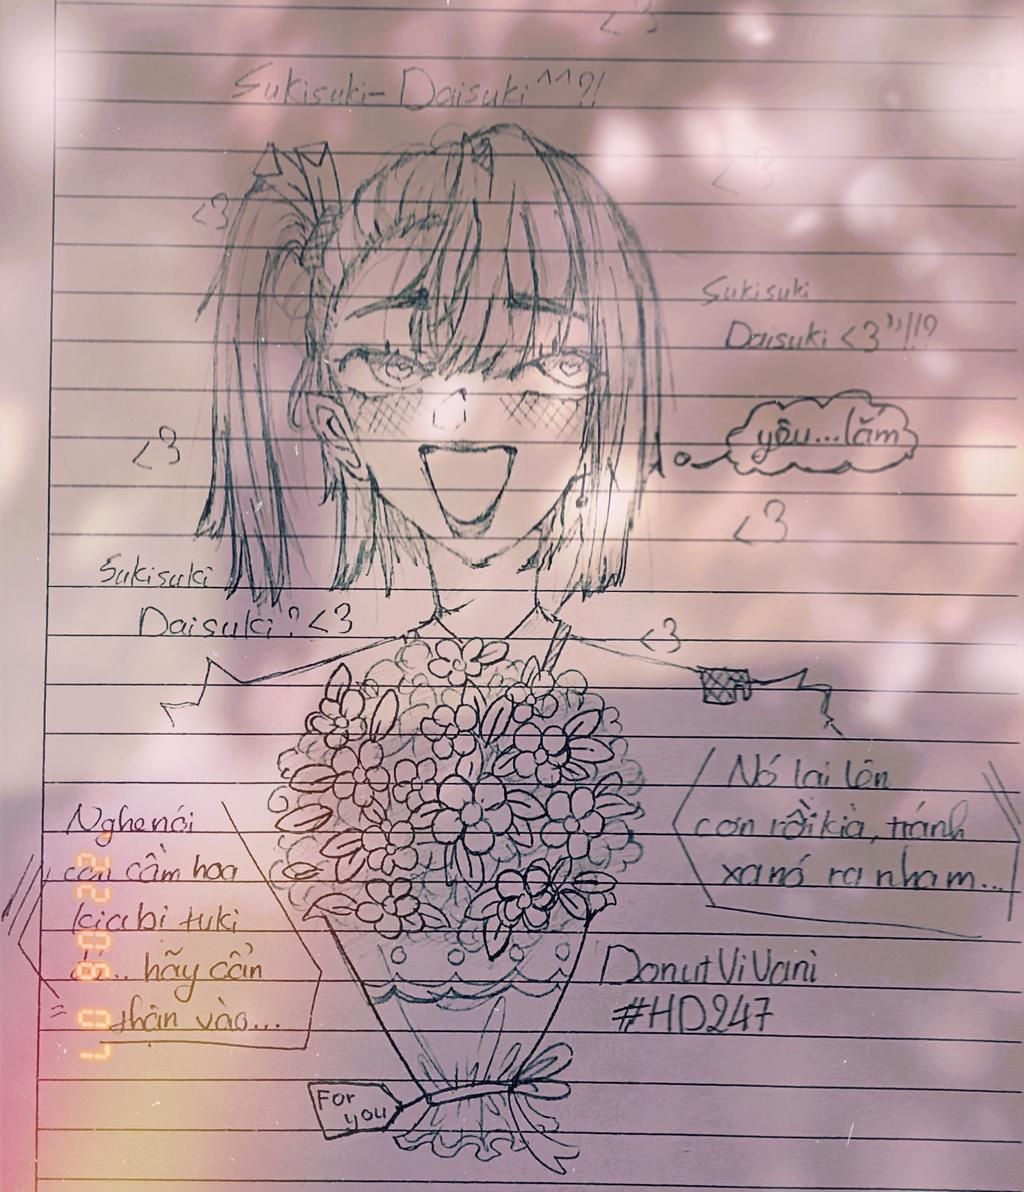 <3
Sukisuki-Daisuki^^?!
<3
<3
Sukisuki
Daisuki <3"!!?
yêu...lắm
<3
<3
Sukisuki
Daisuki? <3
<3
Nó lại lên
cơn rồi kìa, tránh
xa nó ra nha m...
Nghe nói
con cầm hoa
kia bị tuki
... hãy cẩn
thận vào...
DonutViVani
#HD247
For
you
22 06 07